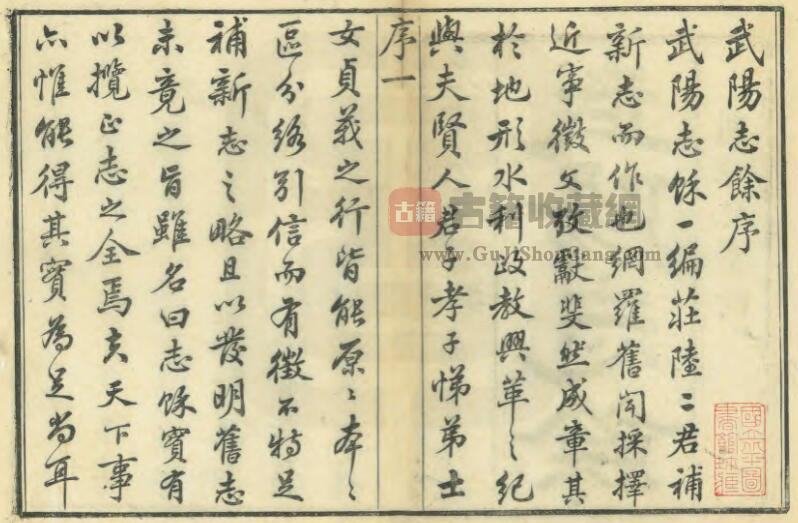 武陽志餘序
武陽志餘一編莊陸二君補
新志而作也網羅舊聞採擇
近事徵文攷獻斐然成章其
於地形水利政教興革之紀
與夫賢人君子孝子悌弟士
序一
女貞義之行皆能原〻本〻
區分引信而有徵不特足
補新志之略且以發明舊志
未竟之旨雖名曰志餘實有
以攬正志之全焉夫天下事
亦惟能得其實為足尚耳
古籍
古籍收藏網
www.GuJiShouCang.com